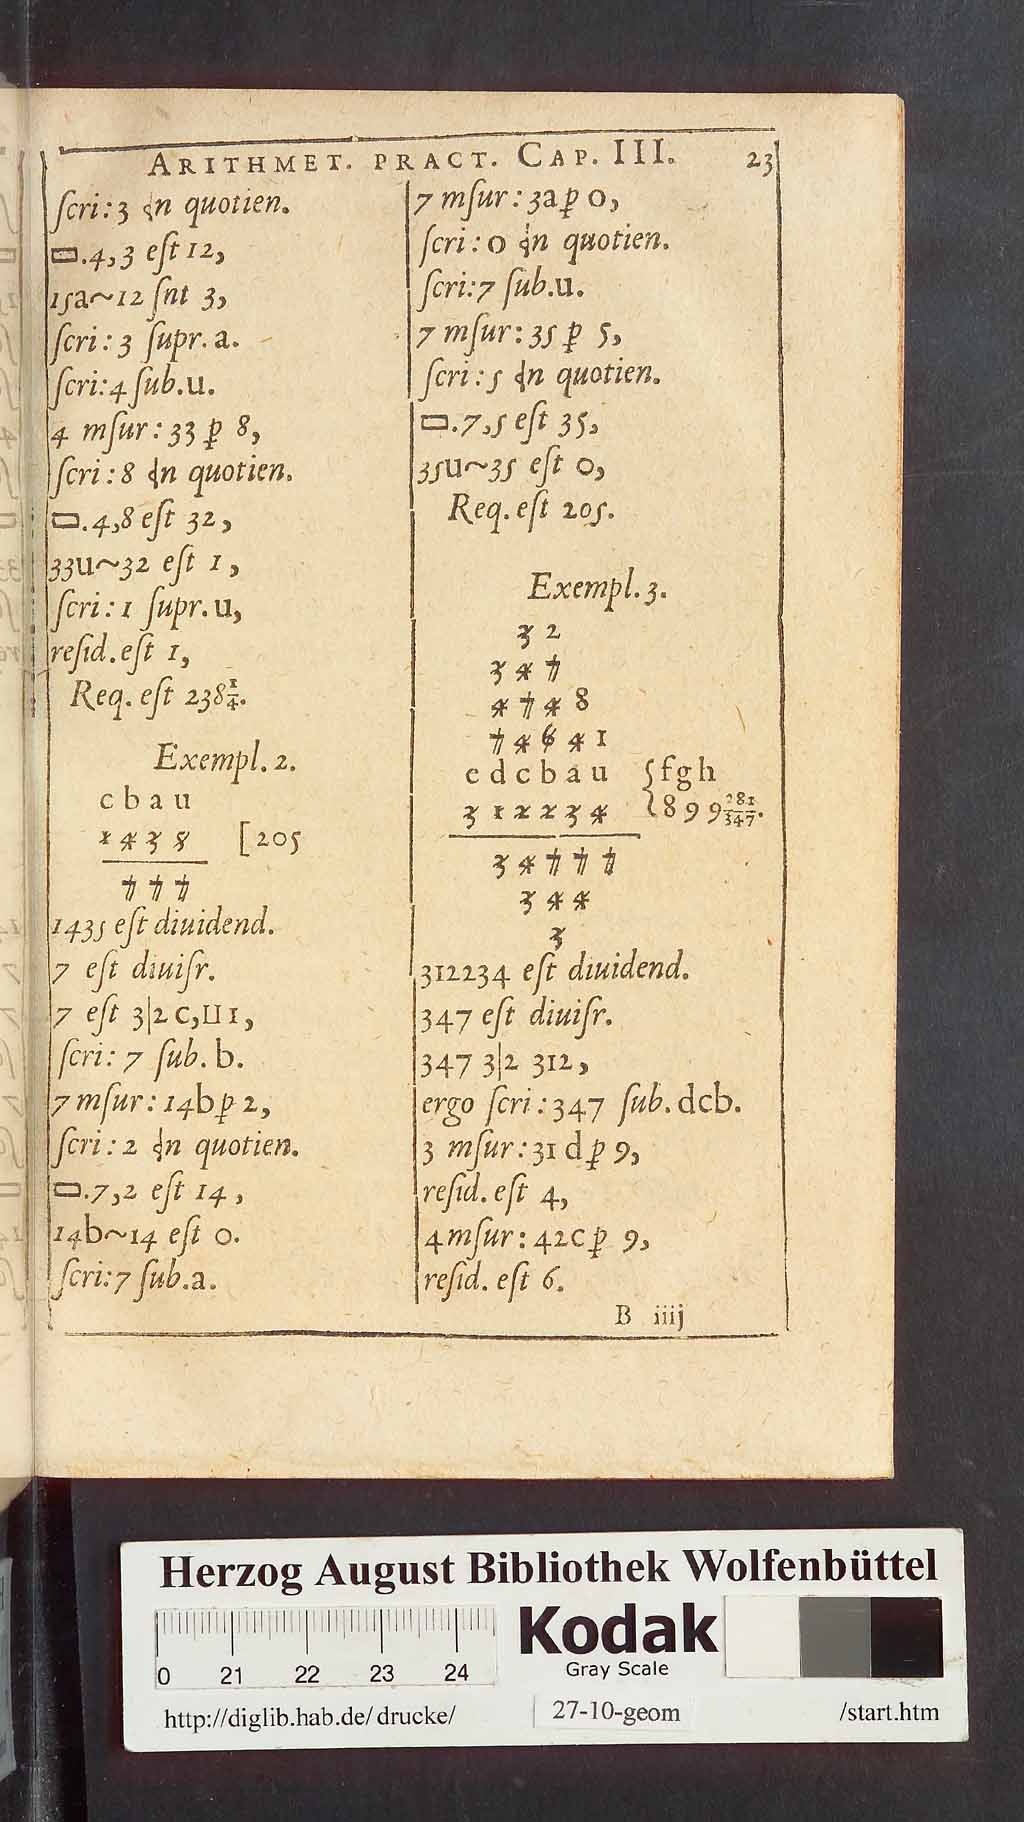 ARITHMET. PRACT. CAP. III. 23
ſcri: 3 in quotien.
▭.4,3 eſt 12,
15a~12 ſnt 3,
ſcri: 3 ſupr. a.
ſcri: 4 ſub.u.
4 mſur: 33 ꝑ 8,
ſcri: 8 in quotien.
▭.4,8 eſt 32,
33u~32 eſt 1,
ſcri: 1 ſupr. u,
reſid. eſt 1,
Req. eſt 238 1/4.
Exempl. 2.
c b a u
1 4 3 8 [205
7 7 7
1435 eſt diuidend.
7 eſt diuiſr.
7 eſt 3|2 c,⊔ 1,
ſcri: 7 ſub. b.
7 mſur: 14b ꝑ 2,
ſcri: 2 in quotien.
▭.7,2 eſt 14,
14b~14 eſt 0.
ſcri: 7 ſub.a.
7 mſur: 3a ꝑ 0,
ſcri: 0 in quotien.
ſcri: 7 ſub.u.
7 mſur: 35 ꝑ 5,
ſcri: 5 in quotien.
▭.7,5 eſt 35,
35u~35 eſt 0,
Req. eſt 205.
Exempl. 3.
3 2
3 4 7
4 7 4 8
7 4 6 4 1
e d c b a u {f g h
3 1 2 2 3 4 {8 9 9 281/347.
3 4 7 7 7
3 4 4
3
312234 eſt diuidend.
347 eſt diuiſr.
347 3|2 312,
ergo ſcri: 347 ſub. dcb.
3 mſur: 31 d ꝑ 9,
reſid. eſt 4,
4 mſur: 42c ꝑ 9,
reſid. eſt 6.
B iiij
Herzog August Bibliothek Wolfenbüttel
Kodak
Gray Scale
0 21 22 23 24
http://diglib.hab.de/drucke/ 27-10-geom /start.htm